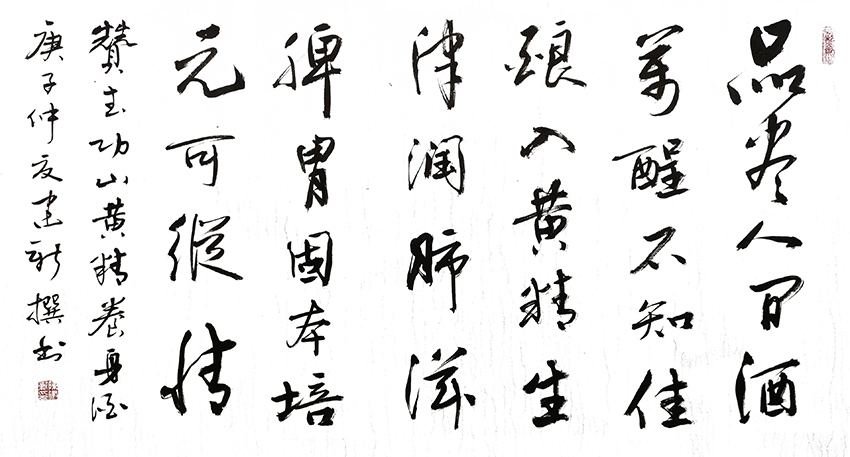 品尽人间酒
萬醒不知佳
酿入黄精生
津润肺滋
脾胃固本培
元可縱情
赞主功山黄精养身酒
庚子仲夏建新撰书